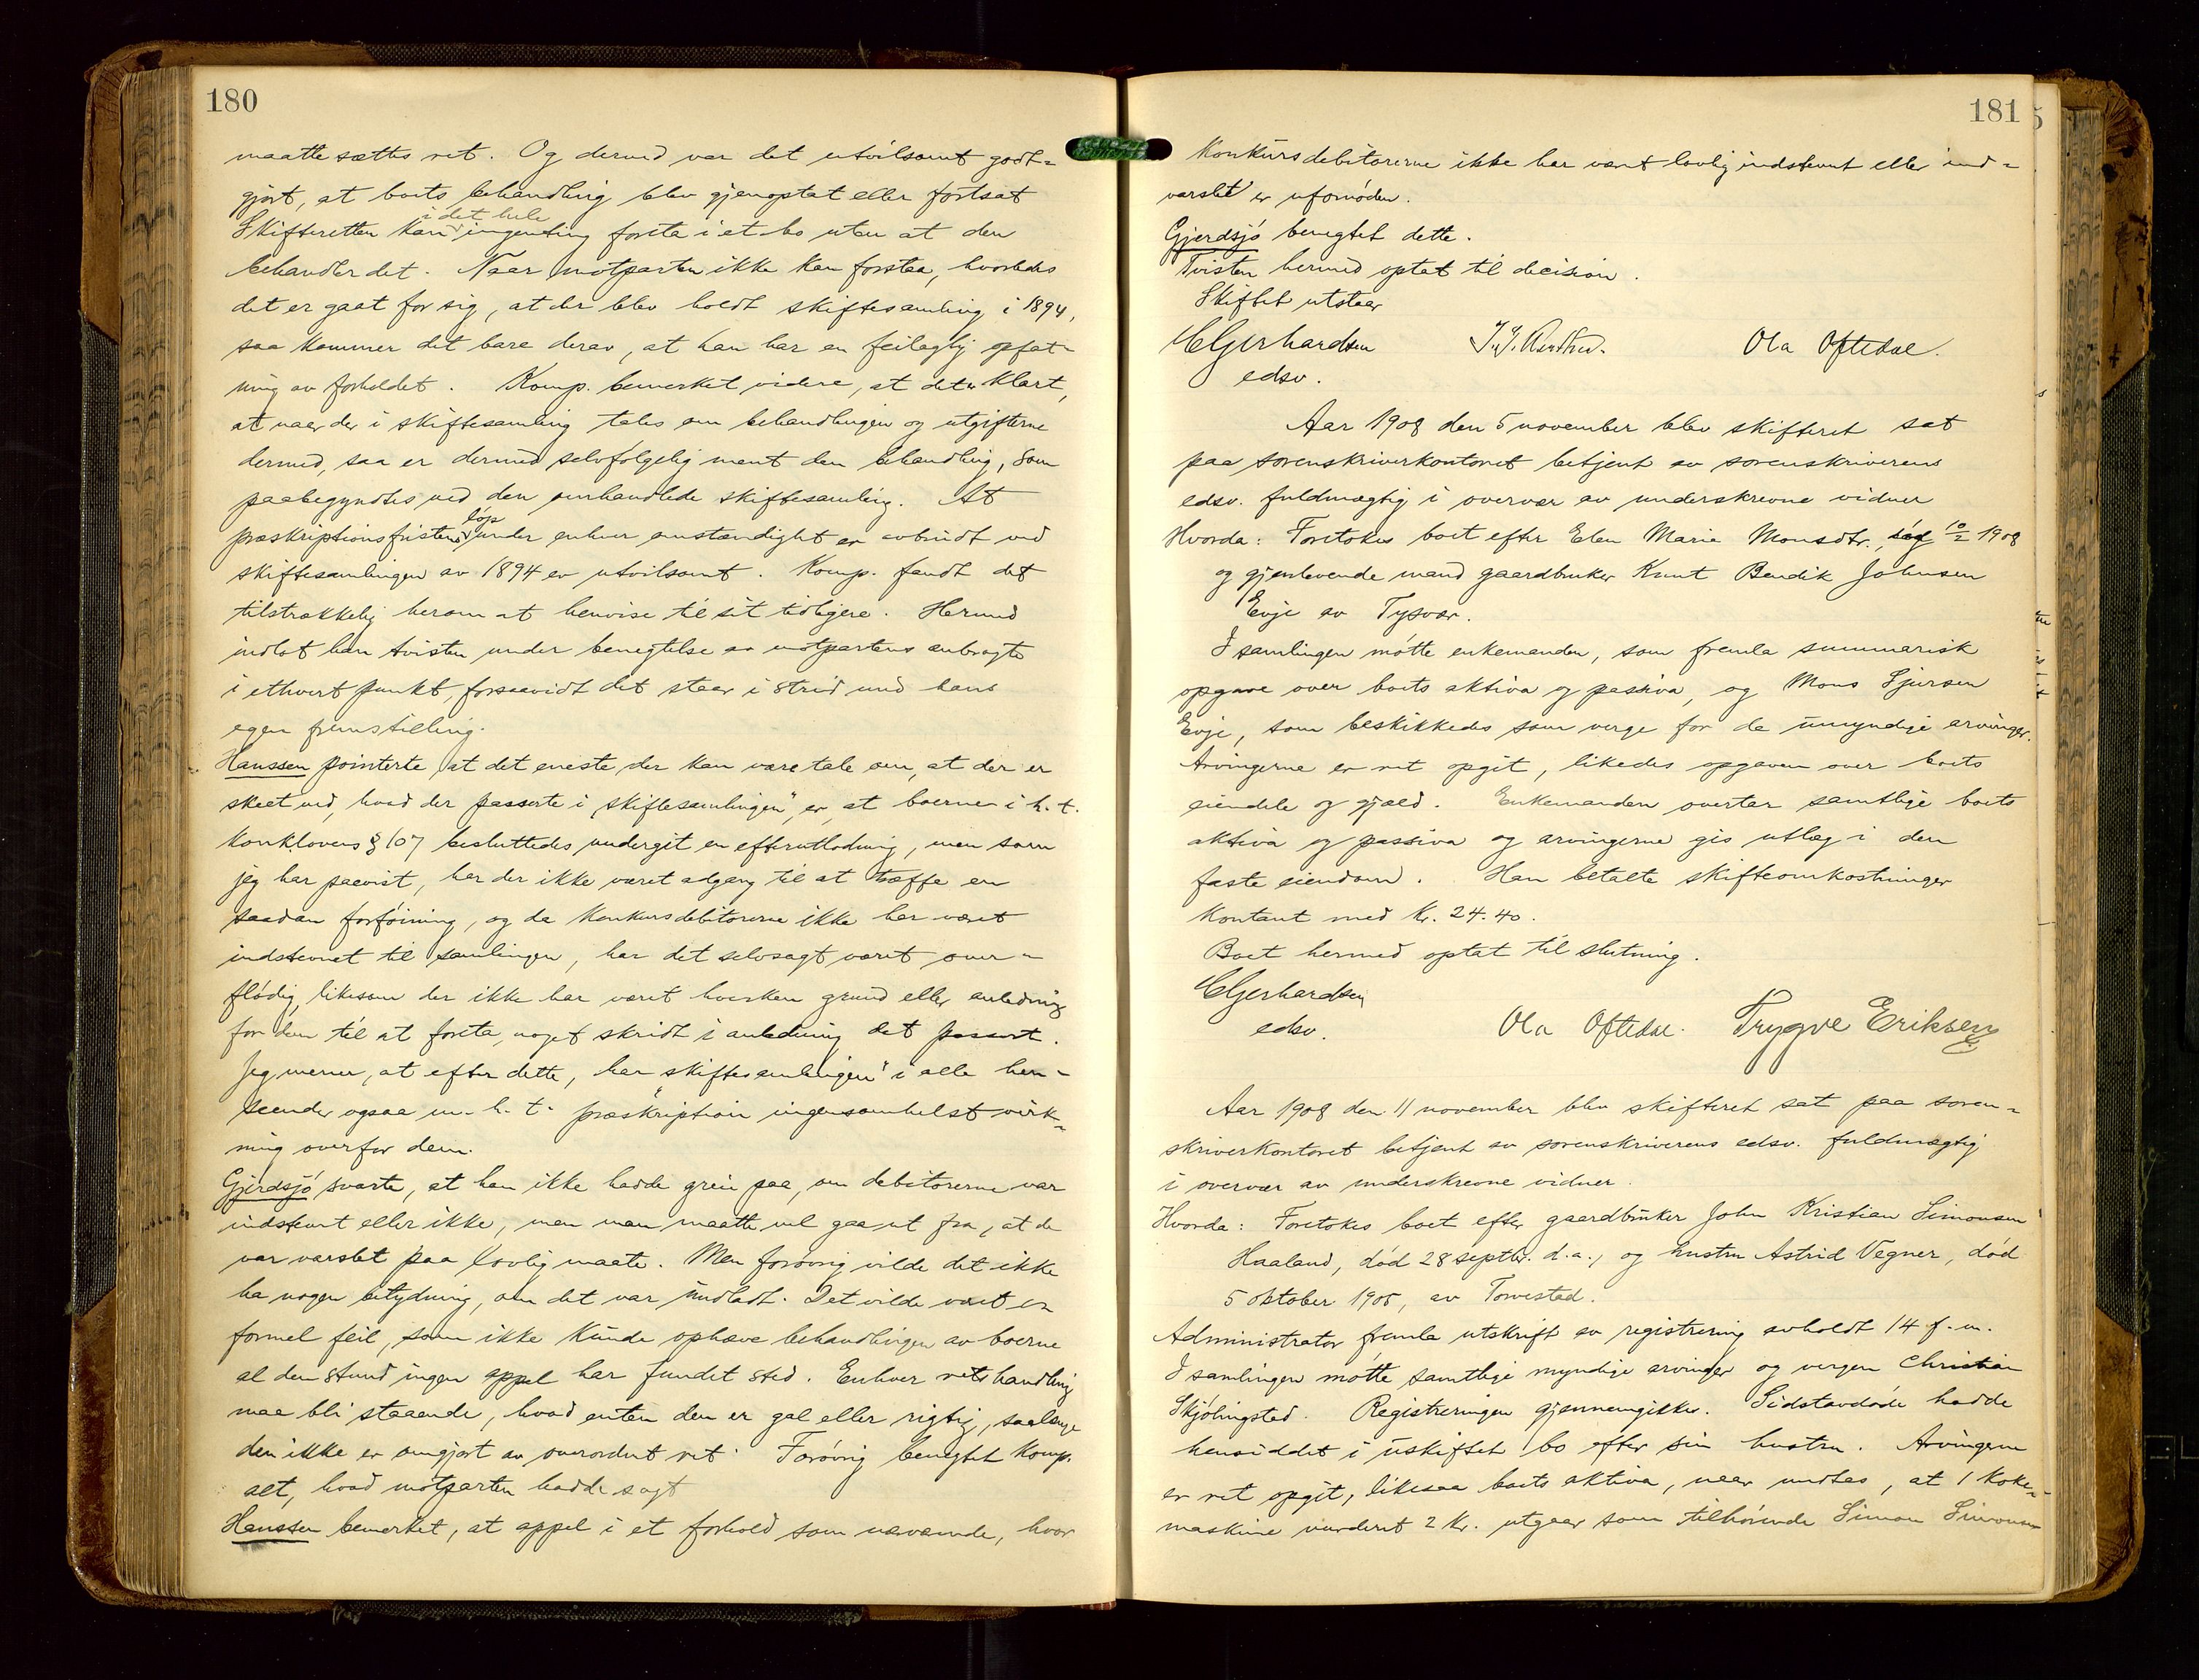 180
maatte sættes ret. Og dermed var det utvilsomt godt=
gjort, at boets behandling blev gjenoptat eller fortsat
i det hele
Skifteretten kan ingenting foreta i et bo uten at den
behandler det. Naar motparten ikke kan forstaa, hvorledes
det er gaat for sig, at der blev holdt skiftesamling i 1894,
saa kommer det bare derav, at han har en feilagtig opfat-
ning av forholdet. Komp. bemerket videre, at det er klart,
at naar der i skiftesamling tales om behandlingen og utgifterne
dermed, saa er dermed selvfølgelig ment den behandling, som
paabegyndtes ved den omhandlede skiftesamling. At
løp
præskriptionsfristens under enhver omstændighet er avbrudt ved
skiftesamlingen av 1894 er utvilsomt. Komp. fandt det
tilstrækkelig herom at henvise til sit tidligere. Hermed
indlot han tvisten under benegtelse av motpartens anbragte
i ethvert punkt, forsaavidt det staar i strid med hans
egen fremstilling.
Hanssen pointerte, at det eneste der kan være tale om, at der er
skeet ved, hvad der passerte i "skiftesamlingen", er, at boerne i h. t.
konklovens § 107 besluttedes undergit en efterutlodning, men som
jeg har paavist, har der ikke været adgang til at træffe en
saadan forføining, og da konkursdebitorerne ikke har været
indstevnet til samlingen, har det selvsagt været over-
flødig, likesom der ikke har været hverken grund eller anledning
for dem til at foreta noget skridt i anledning det passert.
Jeg mener, at efter dette, har "skiftesamlingen" i alle hen-
seender ogsaa m. h. t. præskription ingensomhelst virk-
ning overfor dem.
Gjerdsjø svarte, at han ikke hadde greie paa, om debitorerne var
indstevnt eller ikke, men man maatte vel gaa ut fra, at de
var varslet paa lovlig maate. Men forøvrig vilde det ikke
ha nogen betydning, om det var undladt. Det vilde være en
formel feil, som ikke kunde ophæve behandlingen av boerne
al den stund ingen appel har fundet sted. Enhver retshandling
maa bli staaende, hvad enten den er gal eller rigtig, saalenge
den ikke er omgjort av overordnet ret. Forøvrig benegtet komp.
alt, hvad motparten hadde sagt
Hanssen bemerket, at appel i et forhold som nærværende, hvor
181
konkursdebitorerne ikke har været lovlig indstevnt eller ind-
varslet er ufornøden.
Gjerdsjø benegtet dette.
Tvisten hermed optat til decision.
Skiftet utstaar
CGerhardsen
Ola Oftedal.
edsv.
Aar 1908 den 5 november blev skifteret sat
paa sorenskriverkontoret betjent av sorenskriverens
edsv. fuldmægtig i overvær av underskrevne vidner
Hvorda: Foretokes boet efter Elen Marie Monsdtr. 10/2 1908
og gjenlevende mand gaardbruker Knut Bendik Johnsen
Evje av Tysvær.
I samlingen møtte enkemanden, som fremla summarisk
opgave over boets aktiva og passiva, og Mons Sjursen
Evje, som beskikkedes som verge for de umyndige arvinger.
Arvingerne er ret opgit, likedes opgaven over boets
eiendele og gjæld. Enkemanden overtar samtlige boets
aktiva og passiva og arvingerne gis utlæg i den
faste eiendom. Han betalte skifteomkostninger
kontant med Kr. 24.40.
Boet hermed optat til slutning.
CGerhardsen
edsv.
Ola Oftedal. Trygve Eriksen
Aar 1908 den 11 november blev skifteret sat paa soren-
skriverkontoret betjent av sorenskriverens edsv. fuldmægtig
i overvær av underskrevne vidner.
Hvorda: Foretokes boet efter gaardbruker John Kristian Simonsen
Haaland, død 28 septbr. d. a., og hustru Astrid Vegner, død
5 oktober 1905, av Torvestad.
Administrator fremla utskrift av registrering avholdt 14 f. m.
I samlingen møtte samtlige myndige arvinger og vergen Christian
Skjølingstad. Registreringen gjennemgikkes. Sidstavdøde hadde
hensiddet i uskiftet bo efter sin hustru. Arvingerne
er ret opgit, likesaa boets aktiva, naar undtas, at 1 koke-
maskine vurderet 2 Kr. utgaar som tilhørende Simon Simonsen